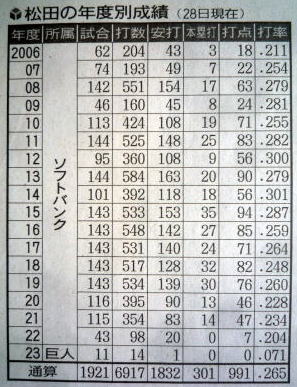 松田の年度別成績（28日現在）
年度 所属 試合 打数 安打 本塁打 打点 打率
2006 62 204 43 3 18 .211
07 74 193 49 7 22 .254
08 142 551 154 17 63 .279
09 46 160 45 8 24 .281
10 113 424 108 19 71 .255
11 144 525 148 25 83 .282
12 95 360 108 9 56 .300
13 144 584 163 20 90 .279
14 101 392 118 18 56 .301
15 143 533 153 35 94 .287
16 143 548 142 27 85 .259
17 143 531 140 24 71 .264
18 143 517 128 32 82 .248
19 143 534 139 30 76 .260
20 116 395 90 13 46 .228
21 115 354 83 14 47 .234
22 43 98 20 0 7 .204
ソフトバンク
23 巨人 11 14 1 0 0 .071
通算 1921 6917 1832 301 991 .265